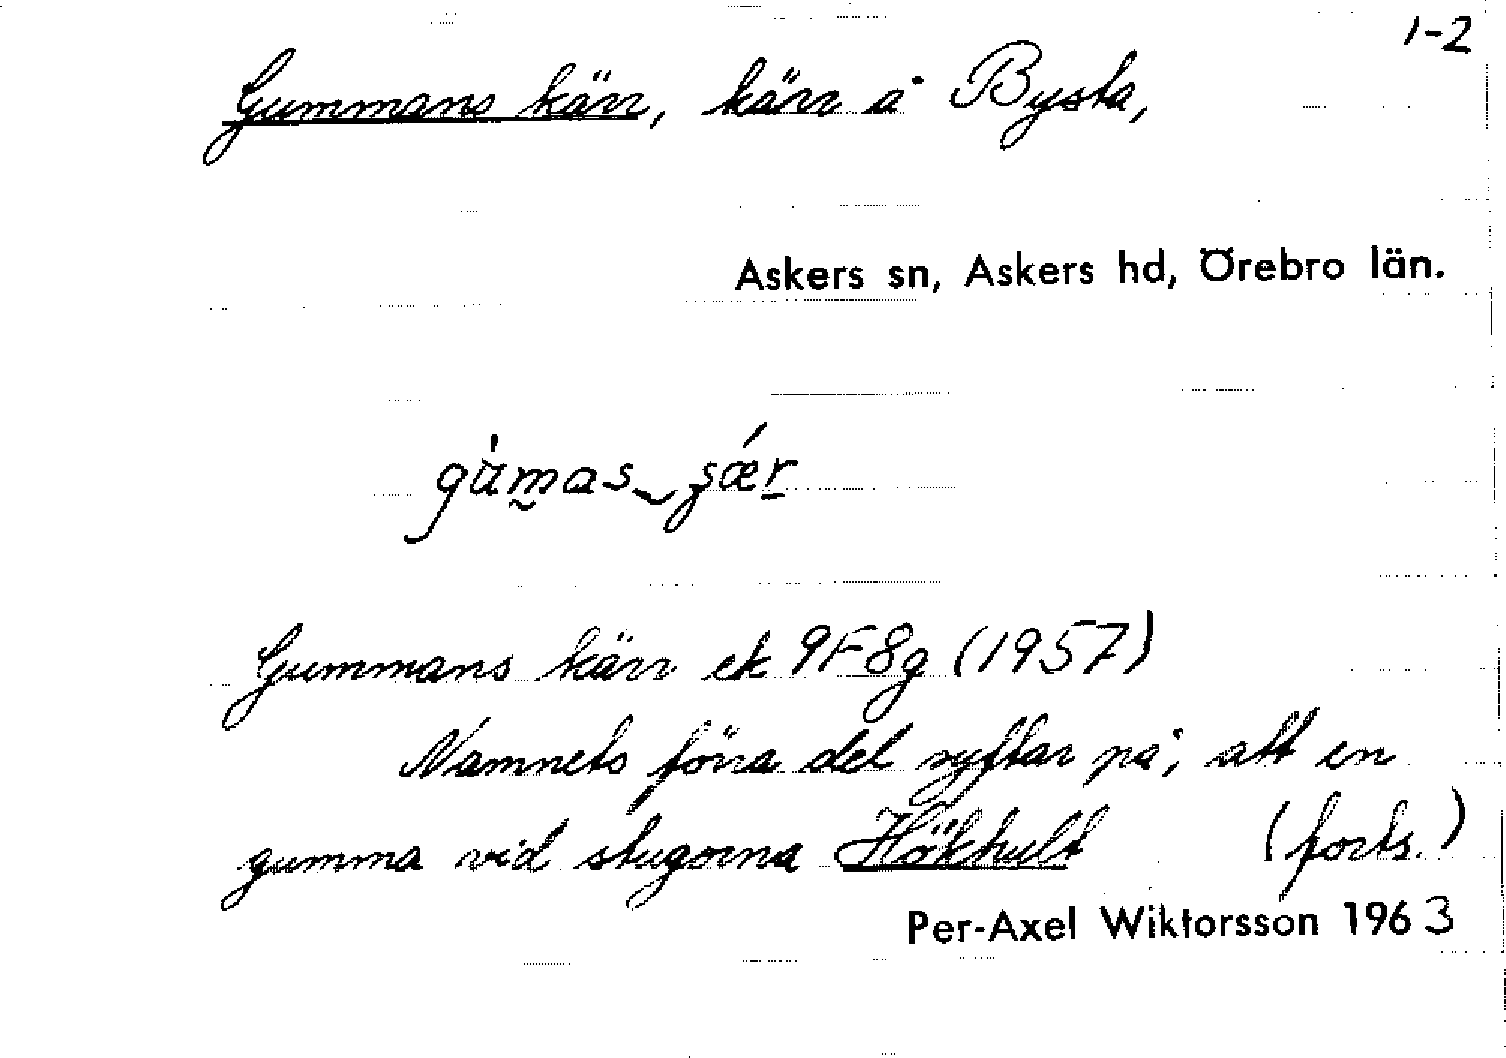 1-2
Gummans kärr, kärr å Bysta,
Askers sn, Askers hd, Örebro län.
Gummans kärr ek 9F8g (1957)
Namnets förra del syftar på, att en
gumma vid stugorna Hökhult (forts.)
Per-Axel Wiktorsson 1963